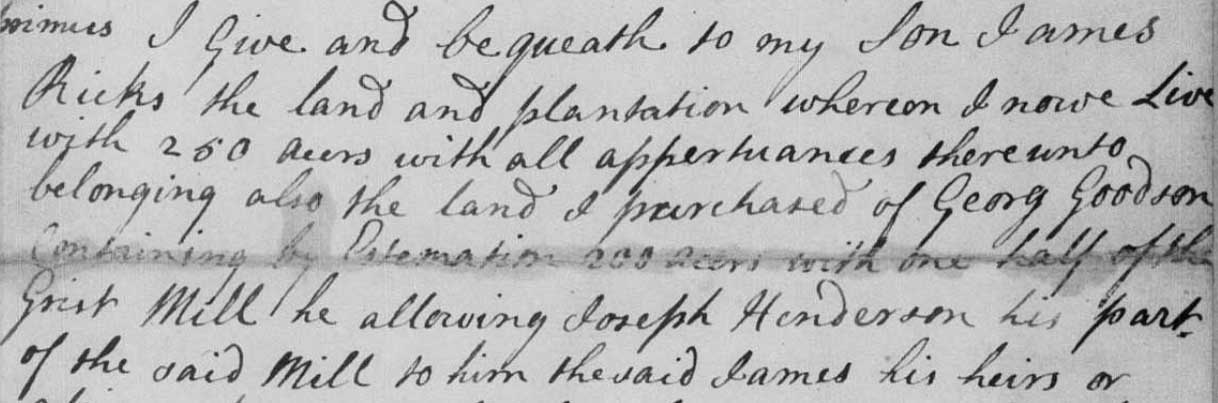 I Give and bequeath to my Son James
Ricks the land and plantation whereon I nowe Live
with 250 acers with all appertuances thereunto
belonging also the land I purchased of Georg Goodson
Containing by Estemation 200 acers with one half of the
Grist Mill he allowing Joseph Henderson his part
of the said Mill to him the said James his heirs or